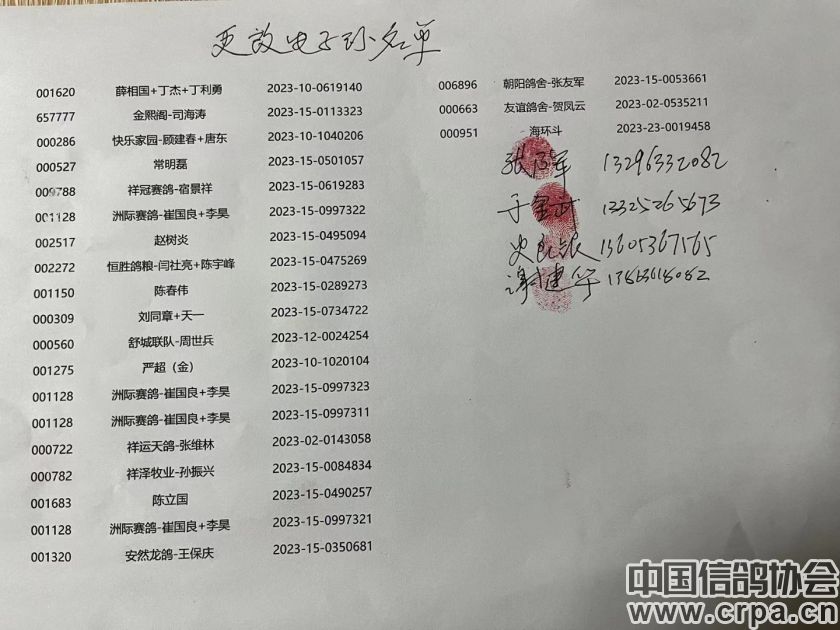 更改电子环名单
001620 薛相国+丁杰+丁利勇 2023-10-0619140
657777 金熙阁-司海涛 2023-15-0113323
000286 快乐家园-顾建春+唐东 2023-10-1040206
000527 常明磊 2023-15-0501057
009788 祥冠赛鸽-宿景祥 2023-15-0619283
001128 洲际赛鸽-崔国良+李昊 2023-15-0997322
002517 赵树炎 2023-15-0495094
002272 恒胜鸽粮-闫社亮+陈宇峰 2023-15-0475269
001150 陈春伟 2023-15-0289273
000309 刘同章+天一 2023-15-0734722
000560 舒城联队-周世兵 2023-12-0024254
001275 严超（金） 2023-10-1020104
001128 洲际赛鸽-崔国良+李昊 2023-15-0997323
001128 洲际赛鸽-崔国良+李昊 2023-15-0997311
000722 祥运天鸽-张维林 2023-02-0143058
000782 祥泽牧业-孙振兴 2023-15-0084834
001683 陈立国 2023-15-0490257
001128 洲际赛鸽-崔国良+李昊 2023-15-0997321
001320 安然龙鸽-王保庆 2023-15-0350681
006896 朝阳鸽舍-张友军 2023-15-0053661
000663 友谊鸽舍-贺凤云 2023-02-0535211
000951 海环斗 2023-23-0019458
张 军 13296332082
于 武 13325265673
史 银 13605367565
谢建华
中国信鸽协会
www.crpa.cn